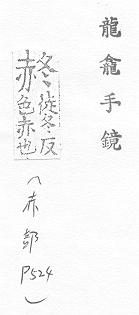 龍龕手鏡
徒冬反
色赤也
(赤部 P524)